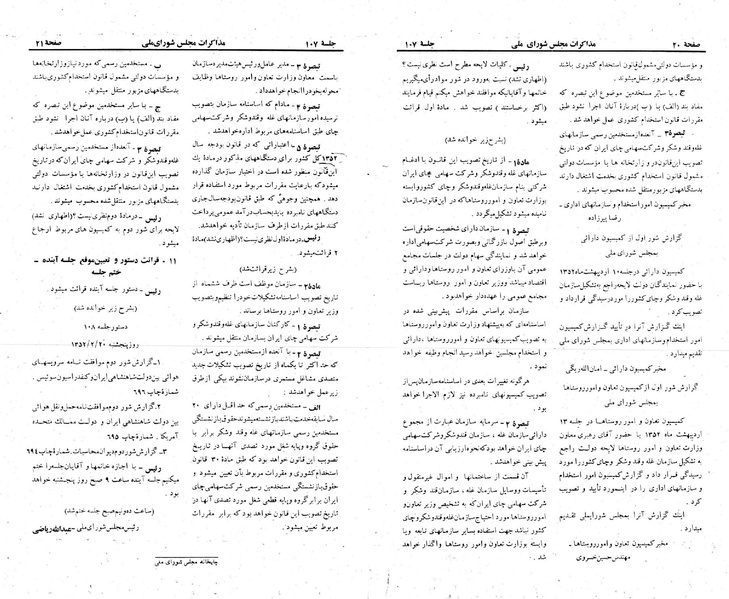 صفحهٔ ۲۰
مذاکرات مجلس شورای ملی
جلسهٔ ۱۰۷
و مؤسسات دولتی مشمول قانون استخدام کشوری باشند
بدستگاههای مزبور منتقل میشوند.
ج ـ با سایر مستخدمین موضوع این تبصره که
مفاد بند (الف) یا (ب) دربارهٔ آنان اجرا نشود طبق
مقررات قانون استخدام کشوری عمل خواهد شد.
تبصرهٔ ۳ ـ آنعده از مستخدمین رسمی سازمانهای
غله و قند و شکر و شرکت سهامی چای ایران که در تاریخ
تصویب این قانون در وزارتخانه ها یا مؤسسات دولتی
مشمول قانون استخدام کشوری بخدمت اشتغال دارند
بدستگاههای مزبور منتقل شده محسوب میشوند.
مخبر کمیسیون امور استخدام و سازمانهای اداری ـ
رضا پیرزاده
گزارش شور اول از کمیسیون دارائی
بمجلس شورای ملی
کمیسیون دارائی در جلسه ۱۰ اردیبهشت ماه ۱۳۵۲
با حضور نمایندگان دولت لایحه راجع به تشکیل سازمان
غله و قند و شکر و چای کشور را مورد رسیدگی قرارداد و
تصویب کرد.
اینک گزارش آنرا در تأیید گزارش کمیسیون
امور استخدام و سازمانهای اداری بمجلس شورای ملی
تقدیم میدارد.
مخبر کمیسیون دارائی ـ امان‌الله ریگی
گزارش شور اول از کمیسیون تعاون و امور روستاها
بمجلس شورای ملی
کمیسیون تعاون و امور روستاها در جلسه ۱۳
اردیبهشت ماه ۱۳۵۲ با حضور آقای رهبری معاون
وزارت تعاون و امور روستاها لایحه دولت راجع
به تشکیل سازمان غله و قند و شکر و چای کشور را مورد
رسیدگی قرار داد و گزارش کمیسیون امور استخدام
و سازمانهای اداری را در اینمورد تأیید و تصویب
کرد.
اینک گزارش آنرا بمجلس شورایملی تقدیم
میدارد.
مخبر کمیسیون تعاون و امور روستاها ـ
مهندس حسین خسروی
رئیس ـ کلیات لایحه مطرح است نظری نیست؟
(اظهاری نشد) نسبت بورود در شور مواد رأی میگیریم
خانمها و آقایانیکه موافقند خواهش میکنم قیام فرمایند
(اکثر برخاستند) تصویب شد. مادهٔ اول قرائت
میشود.
(بشرح زیر خوانده شد)
مادهٔ ۱ ـ از تاریخ تصویب این قانون با ادغام
سازمانهای غله و قند و شکر و شرکت سهامی چای ایران
شرکتی بنام سازمان غله و قند و شکر و چای کشور وابسته
بوزارت تعاون و امور روستاها که در این قانون سازمان
نامیده میشود تشکیل میگردد.
تبصرهٔ ۱ ـ سازمان دارای شخصیت حقوقی است
و بر طبق اصول بازرگانی و بصورت شرکت سهامی اداره
خواهد شد و نمایندگی سهام دولت در جلسات مجامع
عمومی آن باوزرای تعاون و امور روستاها و دارائی و
اقتصاد میباشد وزیر تعاون و امور روستاها ریاست
مجامع عمومی را عهده‌دار خواهد بود.
سازمان براساس مقررات پیش بینی شده در
اساسنامه‌ای که به پیشنهاد وزارت تعاون و امور روستاها
به تصویب کمیسیونهای تعاون و امور روستاها، دارائی
و استخدام مجلسین خواهد رسید انجام وظیفه خواهد
نمود.
هرگونه تغییرات بعدی در اساسنامه سازمان پس از
تصویب کمیسیونهای نامبرده نیز لازم الاجرا خواهد
بود.
تبصرهٔ ۲ ـ سرمایه سازمان عبارت از مجموع
دارائی سازمان غله، سازمان قند و شکر و شرکت سهامی
چای ایران خواهد بود که نحوه ارزیابی آن در اساسنامه
پیش بینی خواهد شد.
آن قسمت از ساختمانها و اموال غیرمنقول و
تأسیسات و وسایل سازمان غله، سازمان قند و شکر و
شرکت سهامی چای ایران که به تشخیص وزیر تعاون و
امور روستاها مورد احتیاج سازمان غله و قند و شکر و چای
کشور نباشد جهت استفاده بسایر سازمانهای تابعه و یا
وابسته بوزارت تعاون و امور روستاها واگذار خواهد
شد.
جلسهٔ ۱۰۷
مذاکرات مجلس شورای ملی
صفحهٔ ۲۱
تبصرهٔ ۳ ـ مدیر عامل و رئیس هیئت مدیره سازمان
باسمت معاون وزارت تعاون و امور روستاها وظایف
محوله بخود را انجام خواهد داد.
تبصرهٔ ۴ ـ مادام که اساسنامه سازمان بتصویب
نرسیده امور سازمانهای غله و قند و شکر و شرکت سهامی
چای طبق اساسنامه‌های مربوط اداره خواهد شد.
تبصرهٔ ۵ ـ اعتباراتی که در قانون بودجه سال
۱۳۵۲ کل کشور برای دستگاههای مذکور در مادهٔ یک
این قانون منظور شده است در اختیار سازمان گذارده
میشود که با رعایت مقررات مربوط مورد استفاده قرار
دهد. همچنین وجوهی که طبق قانون بودجه سال جاری
دستگاههای نامبرده باید بحساب درآمد عمومی پرداخت
نمایند از طرف سازمان تأدیه خواهد شد.
رئیس ـ در مادهٔ اول نظری نیست؟ (اظهاری نشد) مادهٔ
۲ قرائت میشود.
(بشرح زیر قرائت شد)
مادهٔ ۲ ـ سازمان موظف است ظرف ششماه از
تاریخ تصویب اساسنامه تشکیلات خود را تنظیم و بتصویب
وزیر تعاون و امور روستاها برساند.
تبصرهٔ ۱ ـ کارکنان سازمانهای غله و قند و شکر و
شرکت سهامی چای ایران بسازمان منتقل میشوند.
تبصرهٔ ۲ ـ با آنعده از مستخدمین رسمی سازمان
که حداکثر تا یکماه از تاریخ تصویب تشکیلات جدید
متصدی مشاغل مستمری در سازمان نشوند بیکی از طرق
زیر عمل خواهد شد:
الف ـ مستخدمین رسمی که حداقل دارای ۲۰
سال سابقه خدمت باشند بازنشسته میشوند حقوق بازنشستگی
مستخدمین رسمی سازمانهای غله و قند و شکر برابر با
حقوق گروه و پایه شغل مورد تصدی آنها در تاریخ تصویب
این قانون خواهد بود که طبق مادهٔ ۳۰ قانون
استخدام کشوری و مقررات مربوط بآن تعیین میشود و
حقوق بازنشستگی مستخدمین رسمی شرکت سهامی چای
ایران برابر گروه و پایه قطعی شغل مورد تصدی آنها در
تاریخ تصویب این قانون خواهد بود که برابر مقررات
مربوط تعیین میشود.
ب ـ مستخدمین رسمی که مورد نیاز وزارتخانه‌ها
و مؤسسات دولتی مشمول قانون استخدام کشوری باشند
بدستگاههای مزبور منتقل میشوند.
ج ـ با سایر مستخدمین موضوع این تبصره که
مفاد بند (الف) یا (ب) دربارهٔ آنان اجرا نشود طبق
مقررات قانون استخدام کشوری عمل خواهد شد.
تبصرهٔ ۳ ـ آنعده از مستخدمین رسمی سازمانهای
غله و قند و شکر و شرکت سهامی چای ایران که در تاریخ
تصویب این قانون در وزارتخانه ها یا مؤسسات دولتی
مشمول قانون استخدام کشوری بخدمت اشتغال دارند
بدستگاههای مزبور منتقل شده محسوب میشوند.
رئیس ـ در مادهٔ دوم نظری نیست؟ (اظهاری نشد)
لایحه برای شور دوم به کمیسیون های مربوط ارجاع
میشود.
۱۱ ـ قرائت دستور و تعیین موقع جلسه آینده ـ
ختم جلسه
رئیس ـ دستور جلسه آینده قرائت میشود.
(بشرح زیر خوانده شد)
دستور جلسه ۱۰۸
روز پنجشنبه ۱۳۵۲/۲/۲۰
۱ـ گزارش شور دوم موافقت نامه سرویسهای
هوائی بین دولت شاهنشاهی ایران و کنفدراسیون سوئیس.
شماره چاپ ۶۹۶
۲ـ گزارش شور دوم موافقت نامه حمل و نقل هوائی
بین دولت شاهنشاهی ایران و دولت ممالک متحده
آمریکا. شماره چاپ ۶۹۵
۳ـ گزارش شور دوم دیوان محاسبات. شماره چاپ ۶۹۴
رئیس ـ با اجازه خانمها و آقایان جلسه را ختم
میکنم جلسه آینده ساعت ۹ صبح روز پنجشنبه خواهد
بود.
(ساعت ده و نیم صبح جلسه ختم شد)
رئیس مجلس شورای ملی ـ عبدالله ریاضی
چاپخانه مجلس شورای ملی